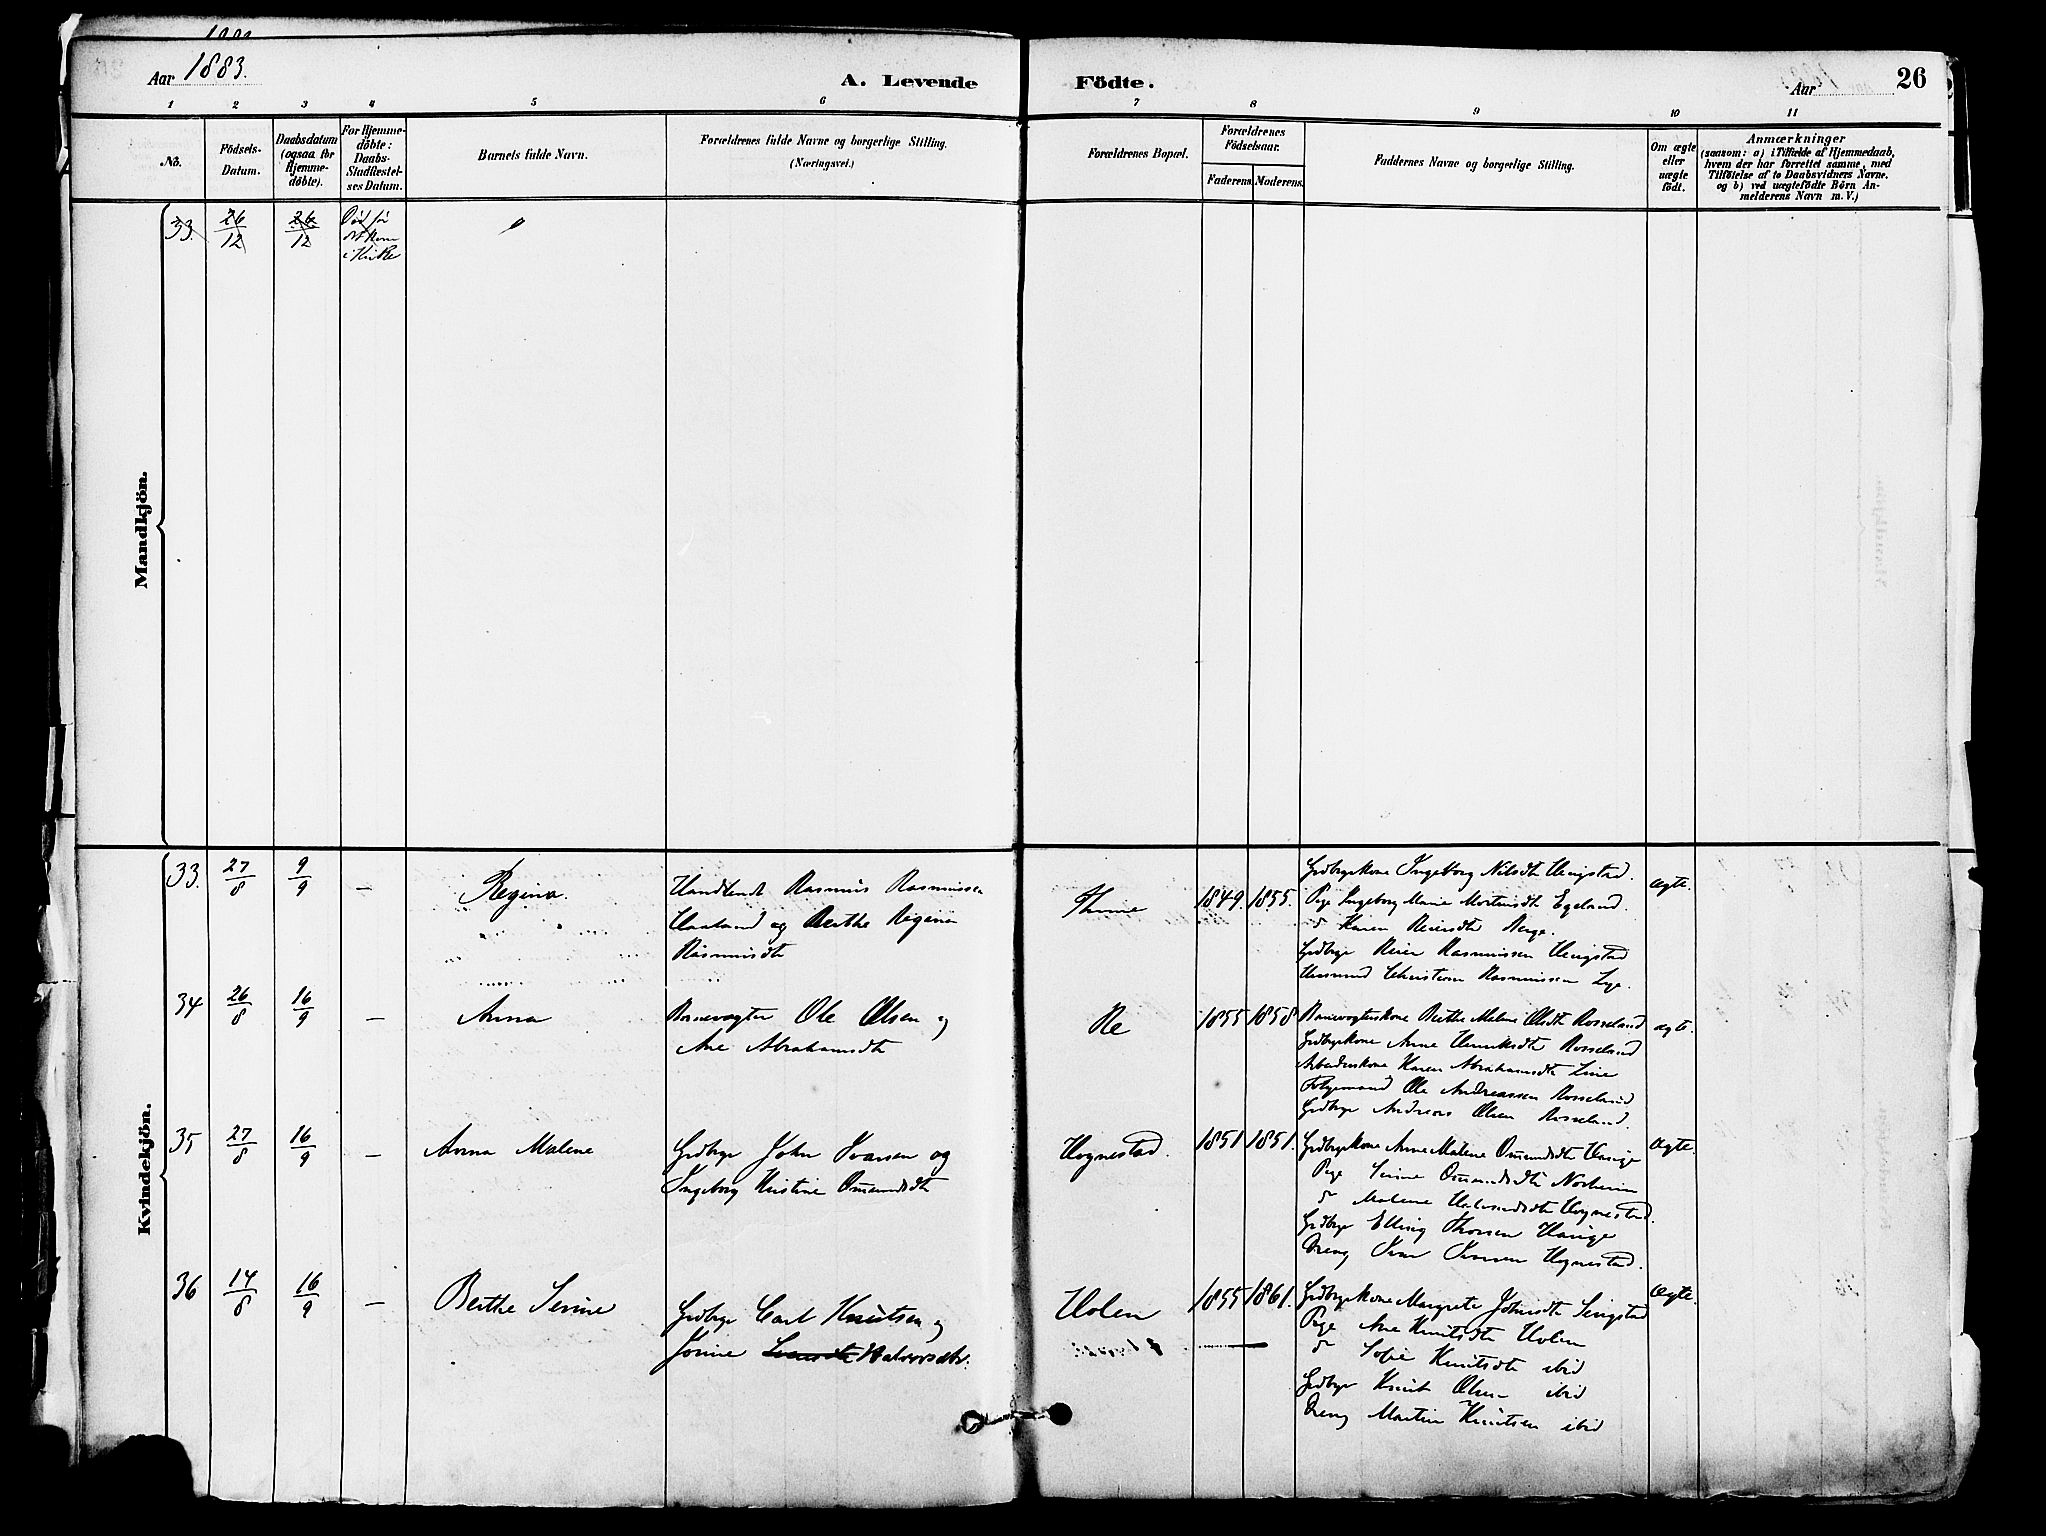 Aar 1883.
A. Levende Födte.
Aar
26
1 2 3 4 5 6 7 8 9 10 11
No.
Födsels-
Datum.
Daabsdatum
(ogsaa for
Hjemme-
döbte).
For Hjemme-
döbte:
Daabs-
Stadfæstel-
ses Datum.
Barnets fulde Navn.
Forældrenes fulde Navne og borgerlige Stilling.
(Næringsvei.)
Forældrenes Bopæl.
Forældrenes
Födselsaar.
Faderens. Moderens.
Faddernes Navne og borgerlige Stilling.
Om ægte
eller
uægte
födt.
Anmærkninger
(saasom: a) i Tilfælde af Hjemmedaab,
hvem der har forrettet samme, med
Tilföielse af to Daabsvidners Navne.
og b) ved uægtefödte Börn An-
melderens Navn m. V.)
Mandkjön.
33. 26/12 26/12
Död før
det kom
i Kirke
Kvindekjön.
33. 27/8 9/9 — Regina.
Handlende Rasmus Rasmussen
Haaland og Berthe Regine
Rasmusdtr
Thime 1849. 1855.
Grdbrgerkone Ingeborg Nilsdtr
Pige Ingeborg Marie Egeland.
Grdbrgr Reier Rasmussen
Rasmussen Lye.
ægte.
34 26/8 16/9 — Anna
Banevogter Ole Olsen og
Ane Abrahamsdtr
Re 1855 1858
Banevogterskone Berthe Malene Olsdtr Rosseland
Grdbrgkone Anne Rosseland
Arbeiderskone Karen Abrahamsdtr
Ole Andreassen Rosseland
Grdbrgr Andreas Olsen Rosseland.
ægte.
35 27/8 16/9 — Anna Malene
Grdbrgr John Ivarsen og
Ingeborg Kristine Omundsdtr
Hognestad. 1851 1851.
Grdbrgrkone Anne Malene Omundsdtr Hauge
Pige Serine Omundsdtr Norheim
Malene Hognestad.
Grdbrgr Elling Thorsen Hauge
Dreng Ivar Hognestad.
Ægte.
36 14/8 16/9 — Berthe Serine
Grdbrgr Carl Knutsen og
Jorine Halvorsdtr.
Holen 1855 1861.
Grdbrgrkone Margrete Johnsdtr
Pige Ane Knutsdtr Holen
Sofie Knutsdtr ibid
Grdbrgr Knut Olsen ibid
Dreng Martin Knutsen ibid
Ægte.